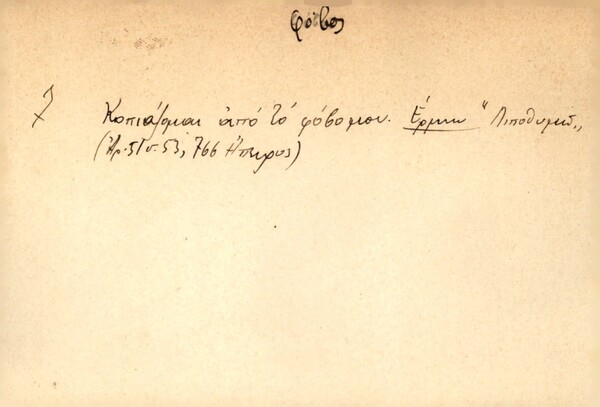 φόβος
Κοπιάζομαι ἀπό τό φόβο μου. Ἑρμην "Λιποθυμῶ„
53, 766 Ἤπειρος)